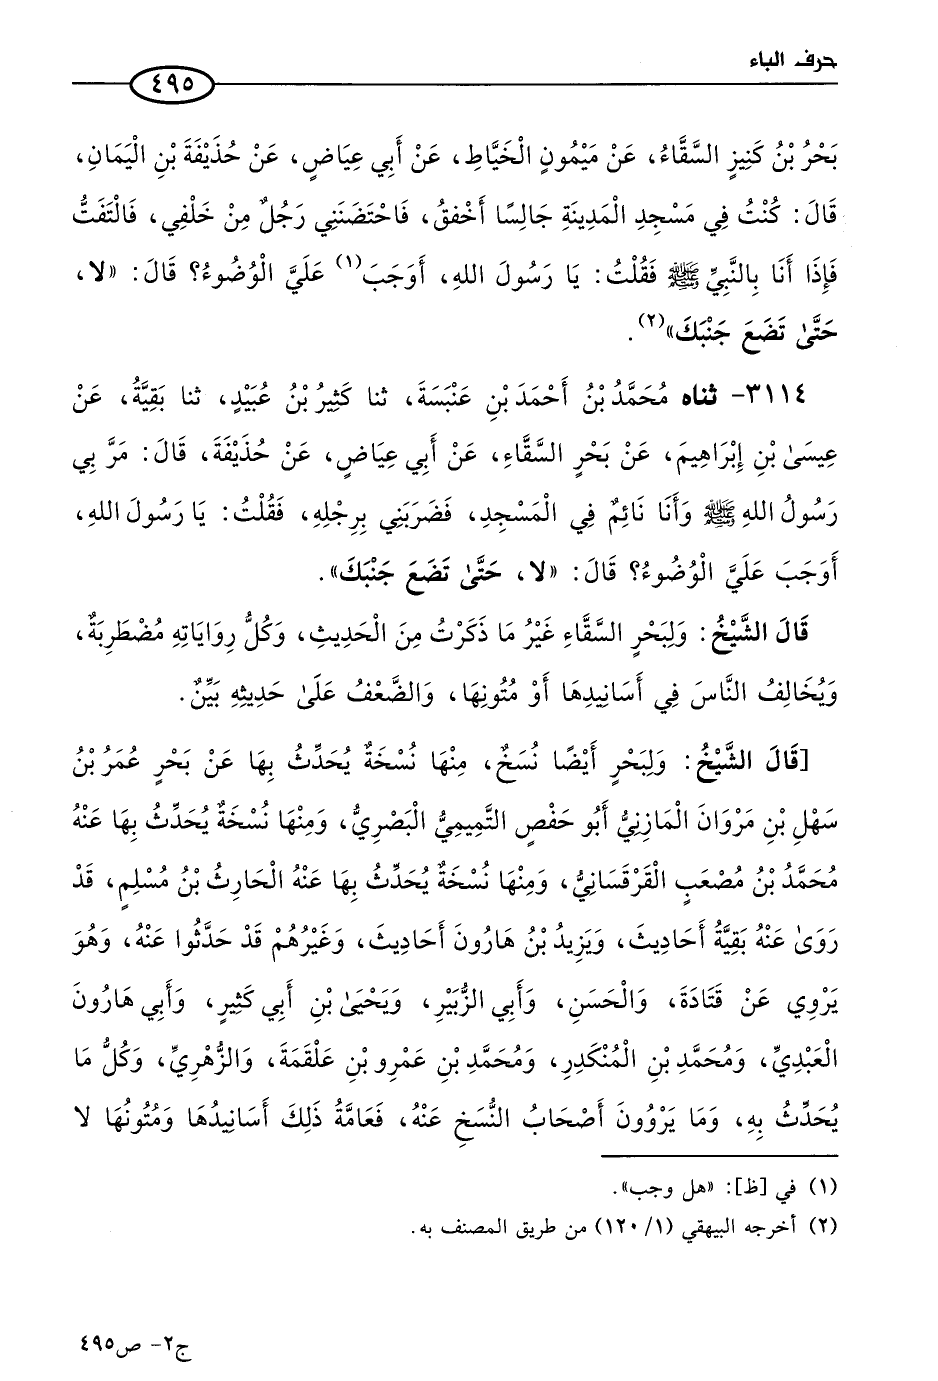 حرف الباء
٤٩٥
بَحْرُ بْنُ كَنِيزٍ السَّقَّاءُ، عَنْ مَيْمُونٍ الْخَيَّاطِ، عَنْ أَبِي عِيَاضٍ، عَنْ حُذَيْفَةَ بْنِ الْيَمَانِ،
قَالَ: كُنْتُ فِي مَسْجِدِ الْمَدِينَةِ جَالِسًا أَخْفقُ، فَاحْتَضَنَنِي رَجُلٌ مِنْ خَلْفِي، فَالْتَفَتُّ
فَإِذَا أَنَا بِالنَّبِيِّ ﷺ فَقُلْتُ: يَا رَسُولَ اللهِ، أَوَجَبَ(١) عَلَيَّ الْوُضُوءُ؟ قَالَ: «لا،
حَتَّىٰ تَضَعَ جَنْبَكَ»(٢).
٣١١٤- ثناه مُحَمَّدُ بْنُ أَحْمَدَ بْنِ عَنْبَسَةَ، ثنا كَثِيرُ بْنُ عُبَيْدٍ، ثنا بَقِيَّةُ، عَنْ
عِيسَىٰ بْنِ إِبْرَاهِيمَ، عَنْ بَحْرٍ السَّقَّاءِ، عَنْ أَبِي عِيَاضٍ، عَنْ حُذَيْفَةَ، قَالَ: مَرَّ بِي
رَسُولُ اللهِ ﷺ وَأَنَا نَائِمٌ فِي الْمَسْجِدِ، فَضَرَبَنِي بِرِجْلِهِ، فَقُلْتُ: يَا رَسُولَ اللهِ،
أَوَجَبَ عَلَيَّ الْوُضُوءُ؟ قَالَ: «لا، حَتَّىٰ تَضَعَ جَنْبَكَ».
قَالَ الشَّيْخُ: وَلِبَحْرٍ السَّقَّاءِ غَيْرُ مَا ذَكَرْتُ مِنَ الْحَدِيثِ، وَكُلُّ رِوَايَاتِهِ مُضْطَرِبَةٌ،
وَيُخَالِفُ النَّاسَ فِي أَسَانِيدِهَا أَوْ مُتُونِهَا، وَالضَّعْفُ عَلَىٰ حَدِيثِهِ بَيِّنٌ.
[قَالَ الشَّيْخُ: وَلِبَحْرٍ أَيْضًا نُسَخٌ، مِنْهَا نُسْخَةٌ يُحَدِّثُ بِهَا عَنْ بَحْرٍ عُمَرُ بْنُ
سَهْلِ بْنِ مَرْوَانَ الْمَازِنِيُّ أَبُو حَفْصٍ التَّمِيمِيُّ الْبَصْرِيُّ، وَمِنْهَا نُسْخَةٌ يُحَدِّثُ بِهَا عَنْهُ
مُحَمَّدُ بْنُ مُصْعَبٍ الْقَرْقَسَانِيُّ، وَمِنْهَا نُسْخَةٌ يُحَدِّثُ بِهَا عَنْهُ الْحَارِثُ بْنُ مُسْلِمٍ، قَدْ
رَوَىٰ عَنْهُ بَقِيَّةُ أَحَادِيثَ، وَيَزِيدُ بْنُ هَارُونَ أَحَادِيثَ، وَغَيْرُهُمْ قَدْ حَدَّثُوا عَنْهُ، وَهُوَ
يَرْوِي عَنْ قَتَادَةَ، وَالْحَسَنِ، وَأَبِي الزُّبَيْرِ، وَيَحْيَىٰ بْنِ أَبِي كَثِيرٍ، وَأَبِي هَارُونَ
الْعَبْدِيِّ، وَمُحَمَّدِ بْنِ الْمُنْكَدِرِ، وَمُحَمَّدِ بْنِ عَمْرِو بْنِ عَلْقَمَةَ، وَالزُّهْرِيِّ، وَكُلُّ مَا
يُحَدِّثُ بِهِ، وَمَا يَرْوُونَ أَصْحَابُ النُّسَخِ عَنْهُ، فَعَامَّةُ ذَلِكَ أَسَانِيدُهَا وَمُتُونُهَا لا
(١) في [ظ]: «هل وجب».
(٢) أخرجه البيهقي (١/ ١٢٠) من طريق المصنف به.
ج٢- ص٤٩٥